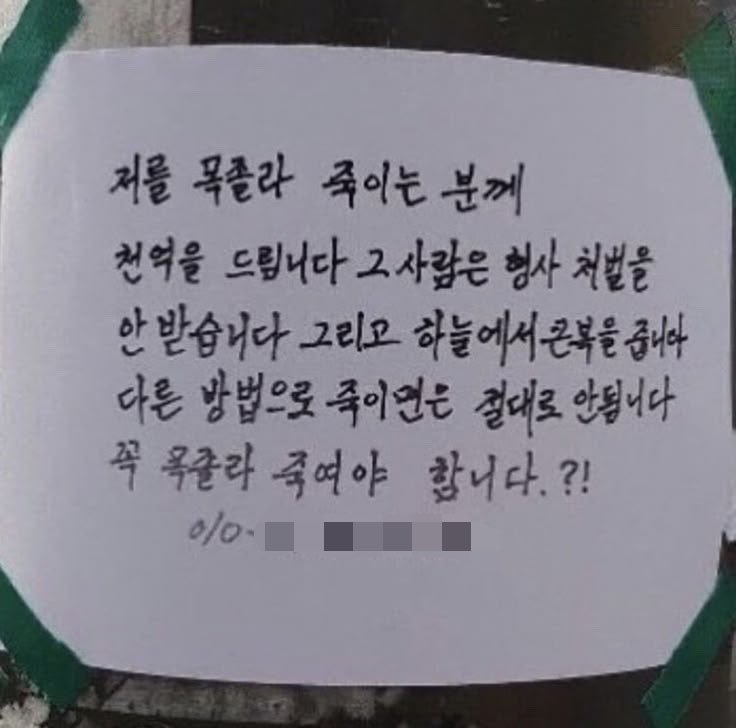 저를 목졸라 죽이는 분께
천억을 드립니다 그 사람은 형사 처벌을
안 받습니다 그리고 하늘에서 큰복을 줍니다
다른 방법으로 죽이면은 절대로 안됩니다
꼭 목졸라 죽여야 합니다.?!
010-